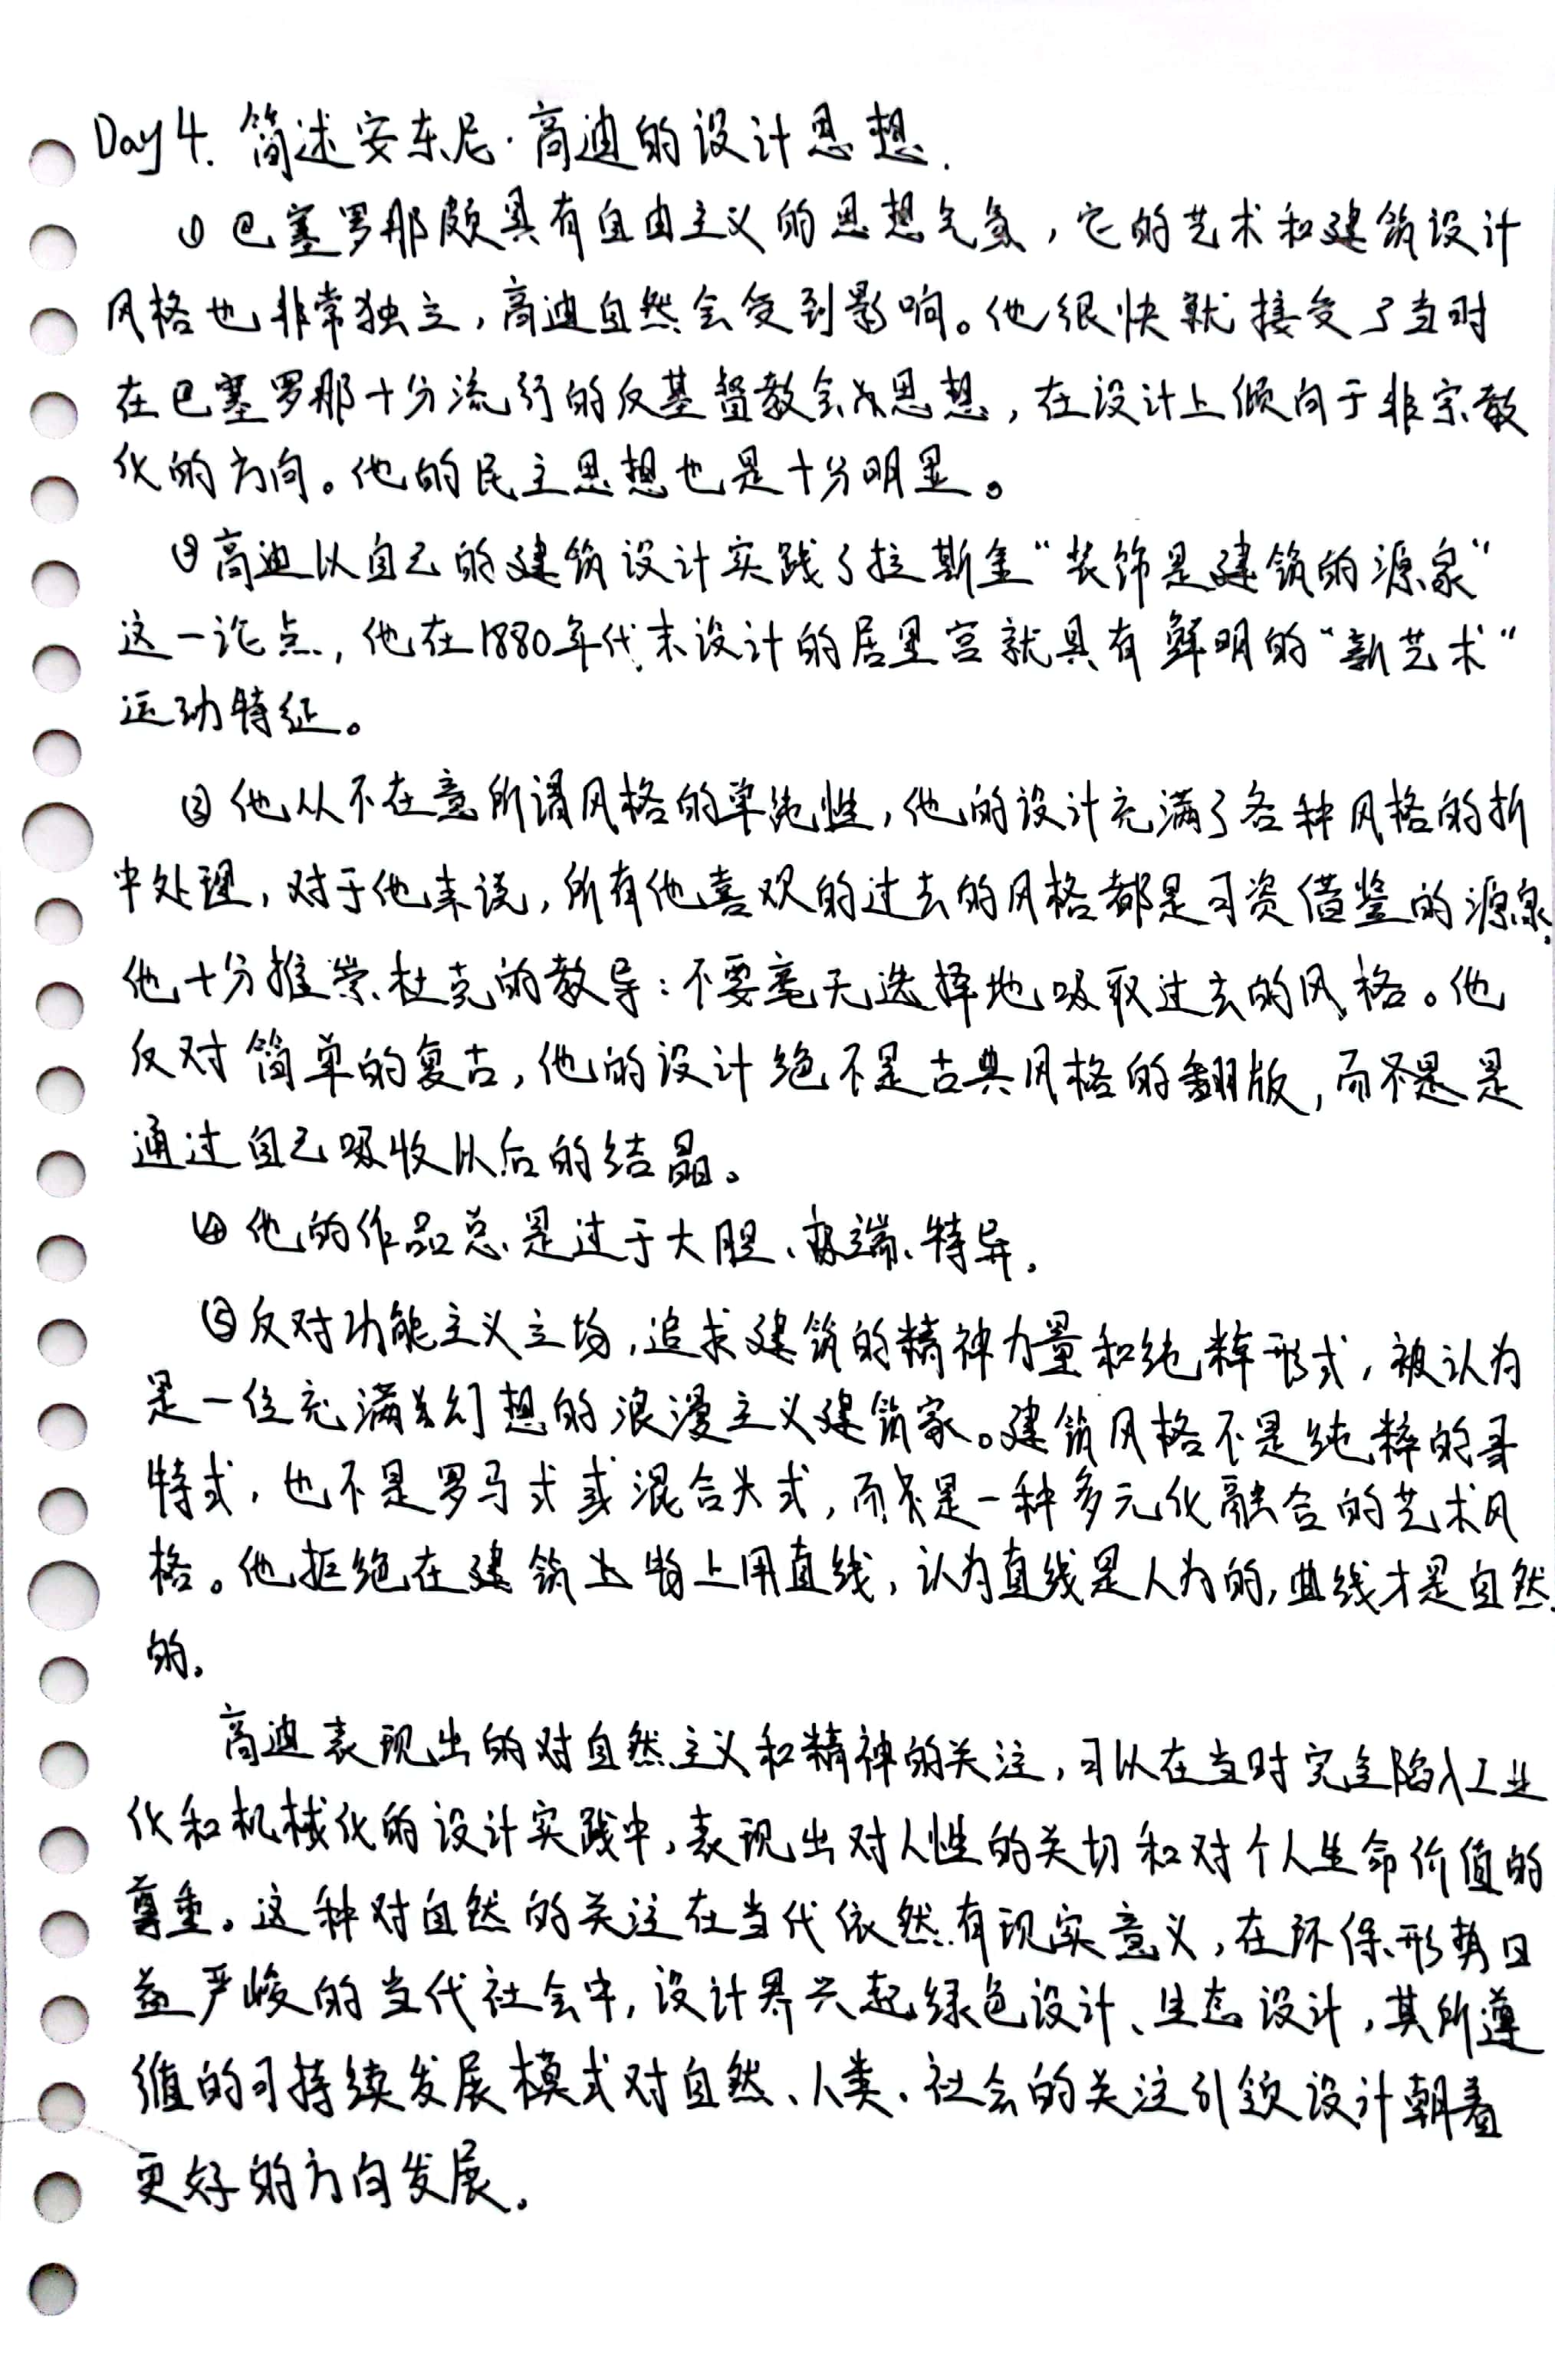 Day 4. 简述安东尼·高迪的设计思想.
① 巴塞罗那颇具有自由主义的思想气氛，它的艺术和建筑设计
风格也非常独立，高迪自然会受到影响。他很快就接受了当时
在巴塞罗那十分流行的反基督教会思想，在设计上倾向于非宗教
化的方向。他的民主思想也是十分明显。
② 高迪以自己的建筑设计实践了拉斯金“装饰是建筑的源泉”
这一论点，他在1880年代末设计的居里宫就具有鲜明的“新艺术”
运动特征。
③ 他从不在意所谓风格的单纯性，他的设计充满了各种风格的折
中处理，对于他来说，所有他喜欢的过去的风格都是可资借鉴的源泉.
他十分推崇杜克的教导：不要毫无选择地吸取过去的风格。他
反对简单的复古，他的设计绝不是古典风格的翻版，而是
通过自己吸收以后的结晶。
④ 他的作品总是过于大胆、极端、特异.
⑤ 反对功能主义立场，追求建筑的精神力量和纯粹形式，被认为
是一位充满幻想的浪漫主义建筑家。建筑风格不是纯粹的哥
特式，也不是罗马式或混合式，而是一种多元化融合的艺术风
格。他拒绝在建筑物上用直线，认为直线是人为的，曲线才是自然
的。
高迪表现出的对自然主义和精神的关注，可以在当时完全陷入工业
化和机械化的设计实践中，表现出对人性的关切和对个人生命价值的
尊重。这种对自然的关注在当代依然有现实意义，在环保形势日
益严峻的当代社会中，设计界兴起绿色设计、生态设计，其所遵
循的可持续发展模式对自然、人类、社会的关注引领设计朝着
更好的方向发展。